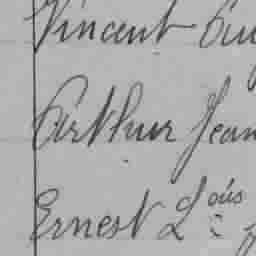 Vincent
Arthur Jean
Ernest Loüis